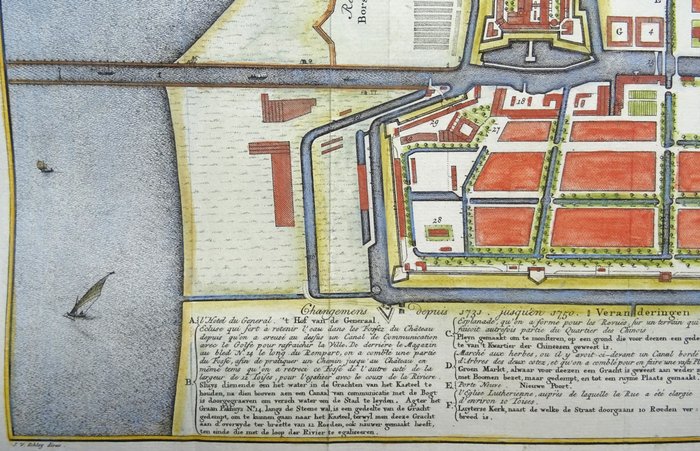 Ro
Bors
E
G
4
18
27
29
28
Changemens depuis 1731. jusqu'en 1750. Veranderingen
A. l'Hotel du General. 't Hof van de Generaal.
Ecluse qui sert à retenir l'eau dans les Fossez du Château
depuis qu'on a creusé au dessus un Canal de Communication
avec le Golfe pour rafraichir la Ville. De derriere le Magasin
au bled N. 14 le long du Rempart, on a comblé une partie
du Fossé, afin de pratiquer un Chemin jusqu'au Château en
même tems qu'on a retreci ce Fossé de l'autre coté de la
largeur de 12 Toises, pour l'egaliser avec le cours de la Riviere.
B. Sluys dienende om het water in de Grachten van het Kasteel te
houden, na dien boven aan een Canal van communicatie met de Bogt
is doorgegraven om versch water om de Stad te leyden. Agter het
Graan Pakhuys N.º 14. langs de Steene wal, is een gedeelte van de Gracht
gedempt, om te kunnen gaan naar het Kasteel, terwyl men deeze Gracht
aan d'overwyde ter breette van 12 Roeden, ook nauwer gemaakt heeft,
ten einde die met de loop der Rivier te egaliseeren.
Esplanade, qu'on a formé pour les Revuës, sur un terrain qui
faisoit autrefois partie du Quartier des Chinois
C. Pleyn gemaakt om te monsteren, op een grond die voor deezen een gedeelte
te van 't Kwartier der Chineesen geweest is.
Marché aux herbes, ou il y avoit ci-devant un Canal bordé
d'Arbres des deux cotez, et qu'on a comblé pour en faire une
D. Groen Markt, alwaar voor deezen een Gracht is geweest aan weder
met Boomen bezet, maar gedempt, en tot een ruyme Plaats gemaakt
E. Porte Neuve. Nieuwe Poort.
l'Eglise Lutherienne, auprès de laquelle la Rue a été élargie
d'environ 10 Toises.
F. Luyterse Kerk, naast de welke de Straat doorgaans 10 Roeden ver
breed is.
J. V. Schley direx.